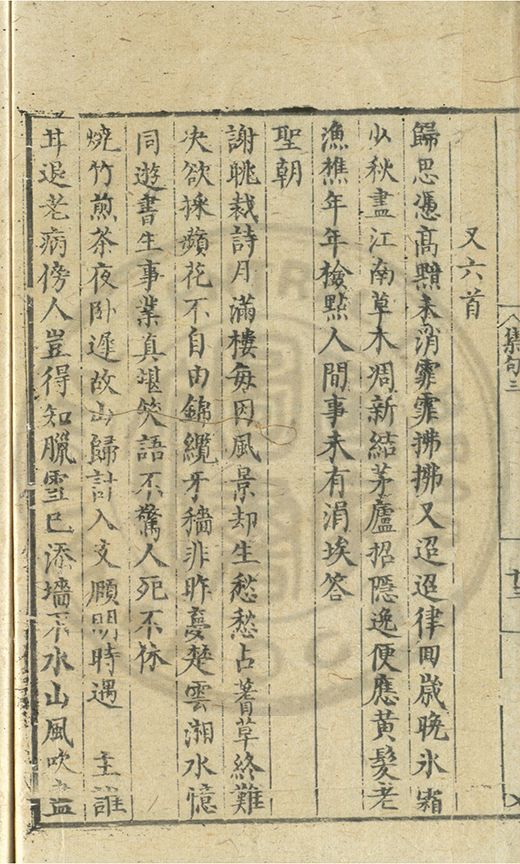 又六首
歸思憑高黯未消霏霏拂拂又迢迢律回歲晚氷霜
少秋盡江南草木凋新結茅廬招隱逸便應黃髮老
漁樵年年檢點人間事未有涓埃答
聖朝
謝眺裁詩月滿樓每因風景却生愁愁占蓍草終難
决欲採蘋花不自由錦纜牙檣非昨夢楚雲湘水憶
同遊書生事業真堪笑語不驚人死不休
燒竹煎茶夜卧遲故山歸計入支頥明時遇主誰
甘退老病傍人豈得知臘雪已添墻下水山風吹盡
集句二